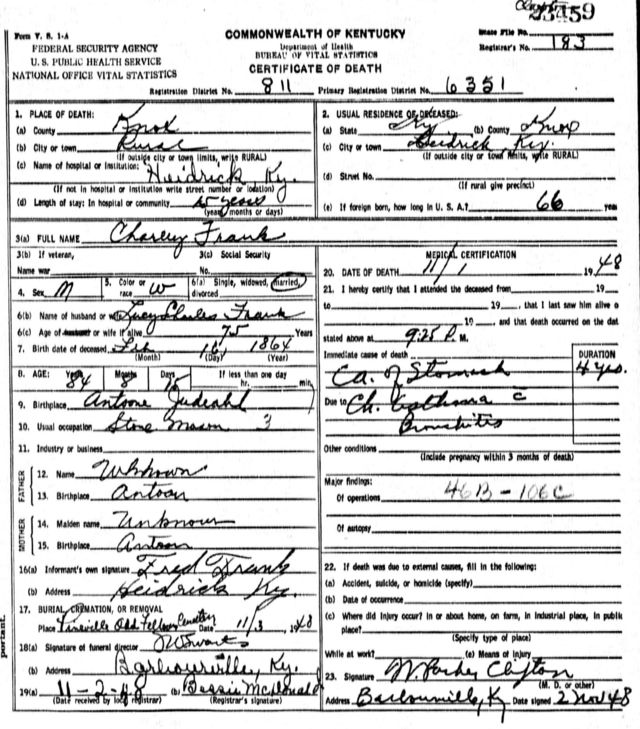 23459
Form V. S. 1-A
FEDERAL SECURITY AGENCY
U. S. PUBLIC HEALTH SERVICE
NATIONAL OFFICE VITAL STATISTICS
COMMONWEALTH OF KENTUCKY
Department of Health
BUREAU OF VITAL STATISTICS
CERTIFICATE OF DEATH
State File No.
Registrar's No. 183
Registration District No. 811 Primary Registration District No. 6351
1. PLACE OF DEATH:
(a) County Knox
(b) City or town Rural
(If outside city or town limits, write RURAL)
(c) Name of hospital or institution: Heidrick, Ky.
(If not in hospital or institution write street number or location)
(d) Length of stay: In hospital or community years
(years, months or days)
2. USUAL RESIDENCE OF DECEASED:
(a) State Ky (b) County Knox
(c) City or town Heidrick, Ky.
(If outside city or town limits, write RURAL)
(d) Street No.
(If rural give precinct)
(e) If foreign born, how long in U. S. A.? 66 years
3(a) FULL NAME Charley Frank
3(b) If veteran, 3(c) Social Security
Name war No.
4. Sex M 5. Color or race W 6(a) Single, widowed, married, divorced
6(b) Name of husband or wife Lucy Charles Frank
6(c) Age of husband or wife if alive 75 Years
7. Birth date of deceased Feb 1864
(Month) (Day) (Year)
8. AGE: Years 84 Months 8 Days 15 If less than one day
hr. min.
9. Birthplace Antoone
10. Usual occupation Stone Mason 3
11. Industry or business
FATHER
12. Name Unknown
13. Birthplace Antoon
MOTHER
14. Maiden name Unknown
15. Birthplace Antoon
16(a) Informant's own signature Fred Frank
(b) Address Heidrick Ky.
17. BURIAL, CREMATION, OR REMOVAL
Place Pineville Odd Fellow Cemetery Date 11/3 1948
18(a) Signature of funeral director
(b) Address Barbourville, Ky.
19(a) 11-2-48 (b) Bessie McDonald
(Date received by local registrar) (Registrar's signature)
MEDICAL CERTIFICATION
20. DATE OF DEATH 11/1 1948
21. I hereby certify that I attended the deceased from 19
to 19, that I last saw him alive o
19 and that death occurred on the dat
stated above at 9:25 P. M.
Immediate cause of death
Ca. of Stomach
DURATION
4 yrs.
Due to Ch. Asthma c
Bronchitis
Other conditions
(Include pregnancy within 3 months of death)
Major findings:
Of operations 46B - 106C
Of autopsy
22. If death was due to external causes, fill in the following:
(a) Accident, suicide, or homicide (specify)
(b) Date of occurrence
(c) Where did injury occur? In or about home, on farm, in industrial place, in public
place?
(Specify type of place)
While at work? (e) Means of injury
23. Signature Clifton
(M. D. or other)
Address Barbourville, Ky Date signed 2 Nov 48
portant.